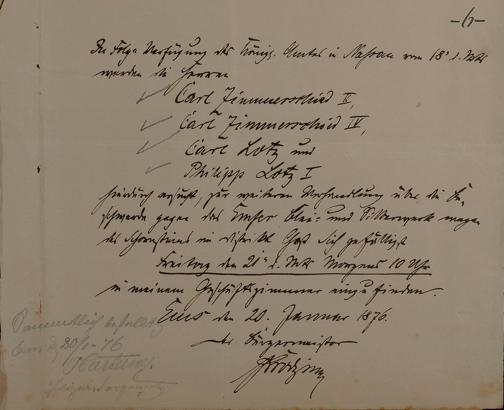 -6-
In Folge Verfügung des Königl. Amtes in Nassau vom 18' d. Mts
werden die Herren
Carl Zimmerschied II,
Carl Zimmerschied IV,
Carl Lotz und
Philipp Lotz I
hierdurch ersucht, zur weiteren Verhandlung über die Be-
schwerde gegen das Emser Blei- und Silberwerk wegen
des Schornsteins im Distrikt sich gefälligst
Freitag den 21' d. Mts Morgens 10 Uhr
in meinem Geschäftszimmer einzufinden.
Ems den 20. Januar 1876.
der Bürgermeister
Sämmtlich bestellt
Ems d. 20/1-76